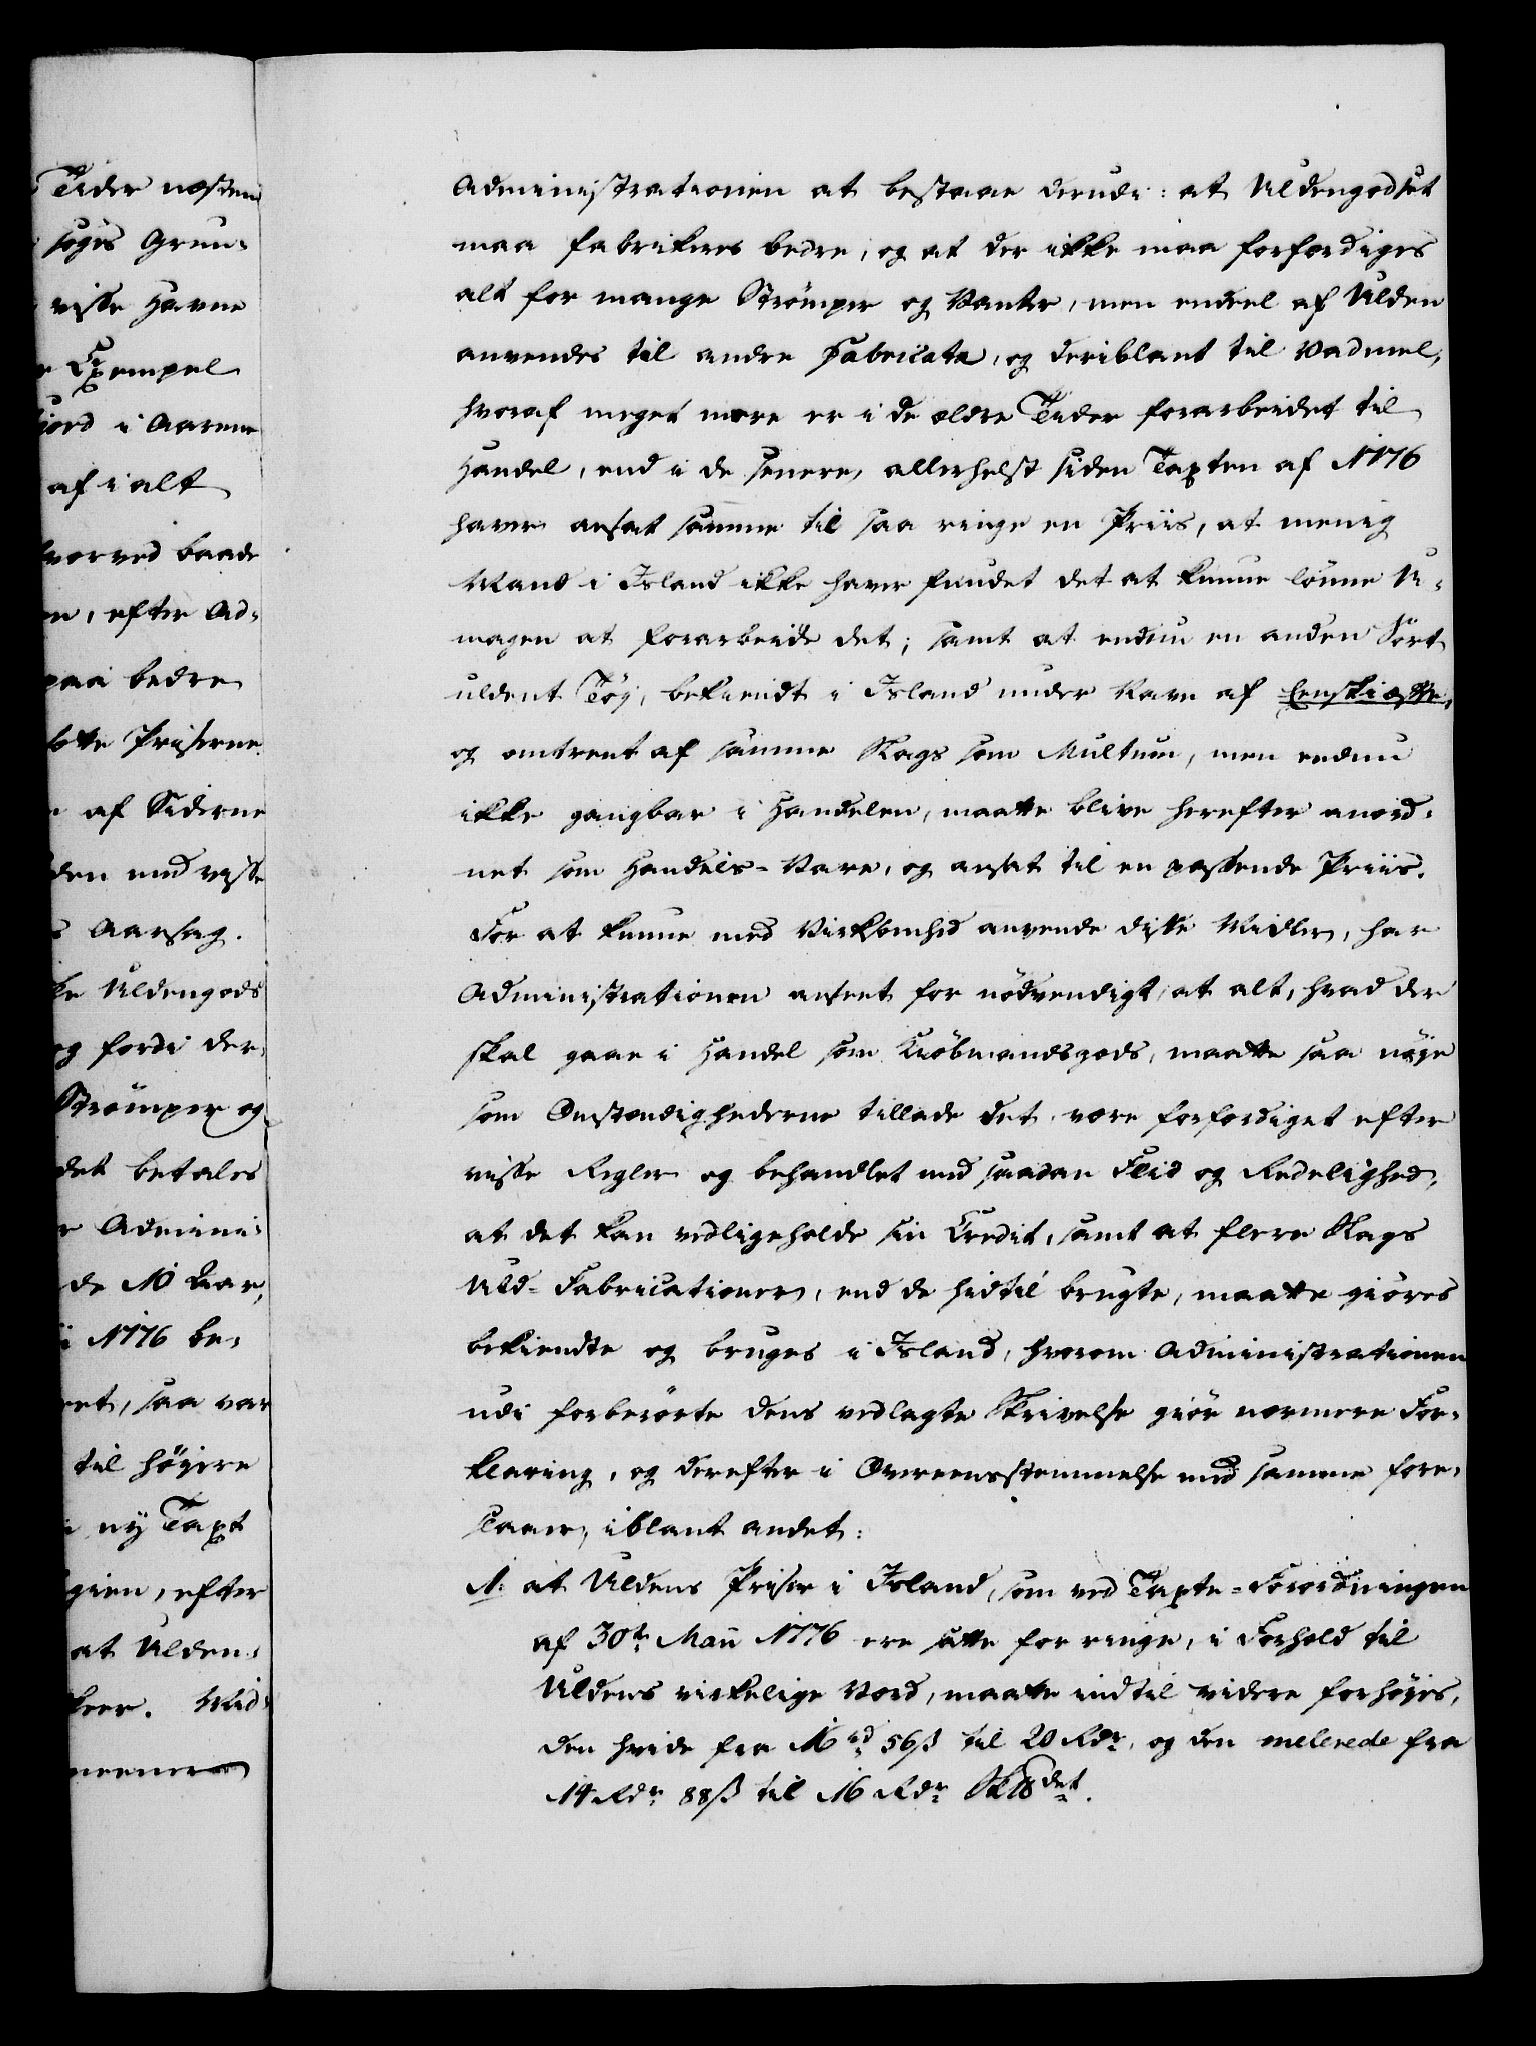 Tider næsten
søges Grun-
visse Havne
Exempel
i Aarene
af i alt
hvorved baade
efter Ad-
paa bedre
satte Priserne
af Siderne
den med visse
Aarsag.
Uldengods
og fordi der-
Strömper og
det betales
Admini-
de 10 Aar,
i 1776 be-
saa var
til höyere
ny Taxt
efter
at Ulden-
Mid-
Administrationen at bestaae derudi: at Uldengodset
maa fabrikeres bedre, og at der ikke maa forfærdiges
alt for mange Strömper og Vanter, men endeel af Ulden
anvendes til andre Fabricata, og deriblant til Vadmel,
hvoraf meget mere er i de ældre Tider forarbeidet til
Handel, end i de senere, allerhelst siden Taxten af 1776
haver ansat samme til saa ringe en Priis, at menig
Mand i Island ikke haver fundet det at kunne lönne U-
magen at forarbeide det; samt at endnu en anden Sort
uldent Töj, bekiendt i Island under Navn af Eenskiæfte,
og omtrent af samme Slags som Multum, men endnu
ikke gangbar i Handelen, maatte blive herefter anord-
net som Handels-Vare, og ansat til en passende Priis.
For at kunne med Virksomhed anvende disse Midler, har
Administrationen anseet for nödvendigt, at alt, hvad der
skal gaae i Handel som Kiöbmandsgods, maatte saa nöje
som Omstændighederne tillade det, være forfærdiget efter
visse Regler og behandlet med saadan Flid og Redelighed,
at det kan vedligeholde sin Credit, samt at flere Slags
Uld-Fabricationer, end de hidtil brugte, maatte giöres
bekiendte og bruges i Island, hvorom Administrationen
udi forberörte dens vedlagte Skrivelse giör nærmere For-
klaring, og derefter i Overeensstemmelse med samme fore-
slaaer, iblant andet:
1. at Uldens Priser i Island, som ved Taxte-Forordningen
af 30te Maii 1776 ere satte for ringe, i Forhold til
Uldens virkelige Værd, maatte indtil videre forhöies,
den hvide fra 16 rd 56 ß til 20 Rdr, og den melerede fra
14 Rdr 88 ß til 16 Rdr Sk℔det.